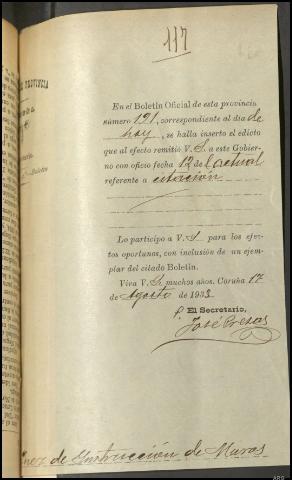 117
En el Boletín Oficial de esta provincia
número 191, correspondiente al día de
hoy, se halla inserto el edicto
que al efecto remitió V. S. a este Gobier-
no con oficio fecha 12 del actual
referente a citación
Lo participo a V. S. para los efec-
tos oportunos, con inclusión de un ejem-
plar del citado Boletín.
Viva V. S. muchos años. Coruña 17
de Agosto de 1933.
P. El Secretario,
José Presas
Juez de Instrucción de Muros
PROVINCIA